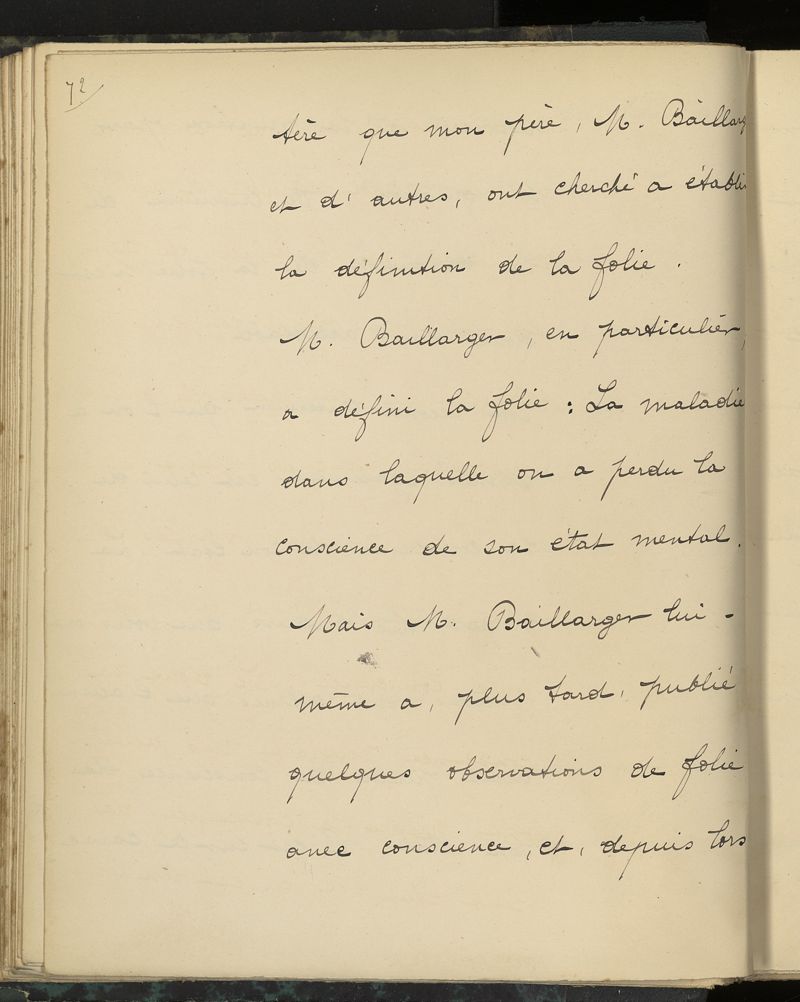 72
tère que mon père, M. Baillarg
et d'autres, ont cherché a établir
la définition de la folie.
M. Baillarger, en particulier,
a défini la folie : La maladie
dans laquelle on a perdu la
conscience de son état mental.
Mais M. Baillarger lui-
même a, plus tard, publié
quelques observations de folie
avec conscience, et, depuis lors